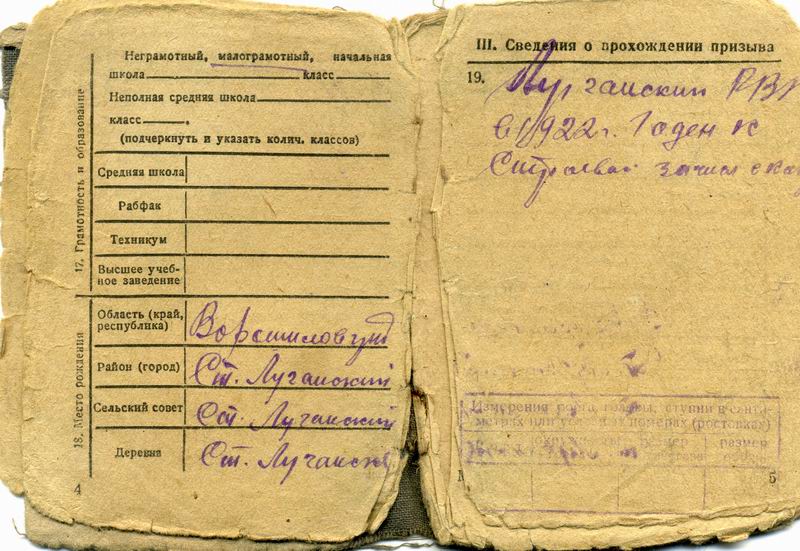 17. Грамотность и образование
Неграмотный, малограмотный, начальная
школа класс
Неполная средняя школа
класс .
(подчеркнуть и указать колич. классов)
Средняя школа
Рабфак
Техникум
Высшее учеб-
ное заведение
18. Место рождения
Область (край,
республика) Ворошиловград
Район (город) Ст. Луганский
Сельский совет Ст. Луганский
Деревня Ст. Луганск
4
III. Сведения о прохождении призыва
19. Луганский РВК
в 1922 г. Годен к
Строевой
Измерения роста, головы, ступни в санти-
метрах или условных номерах (ростовках)
размер
5